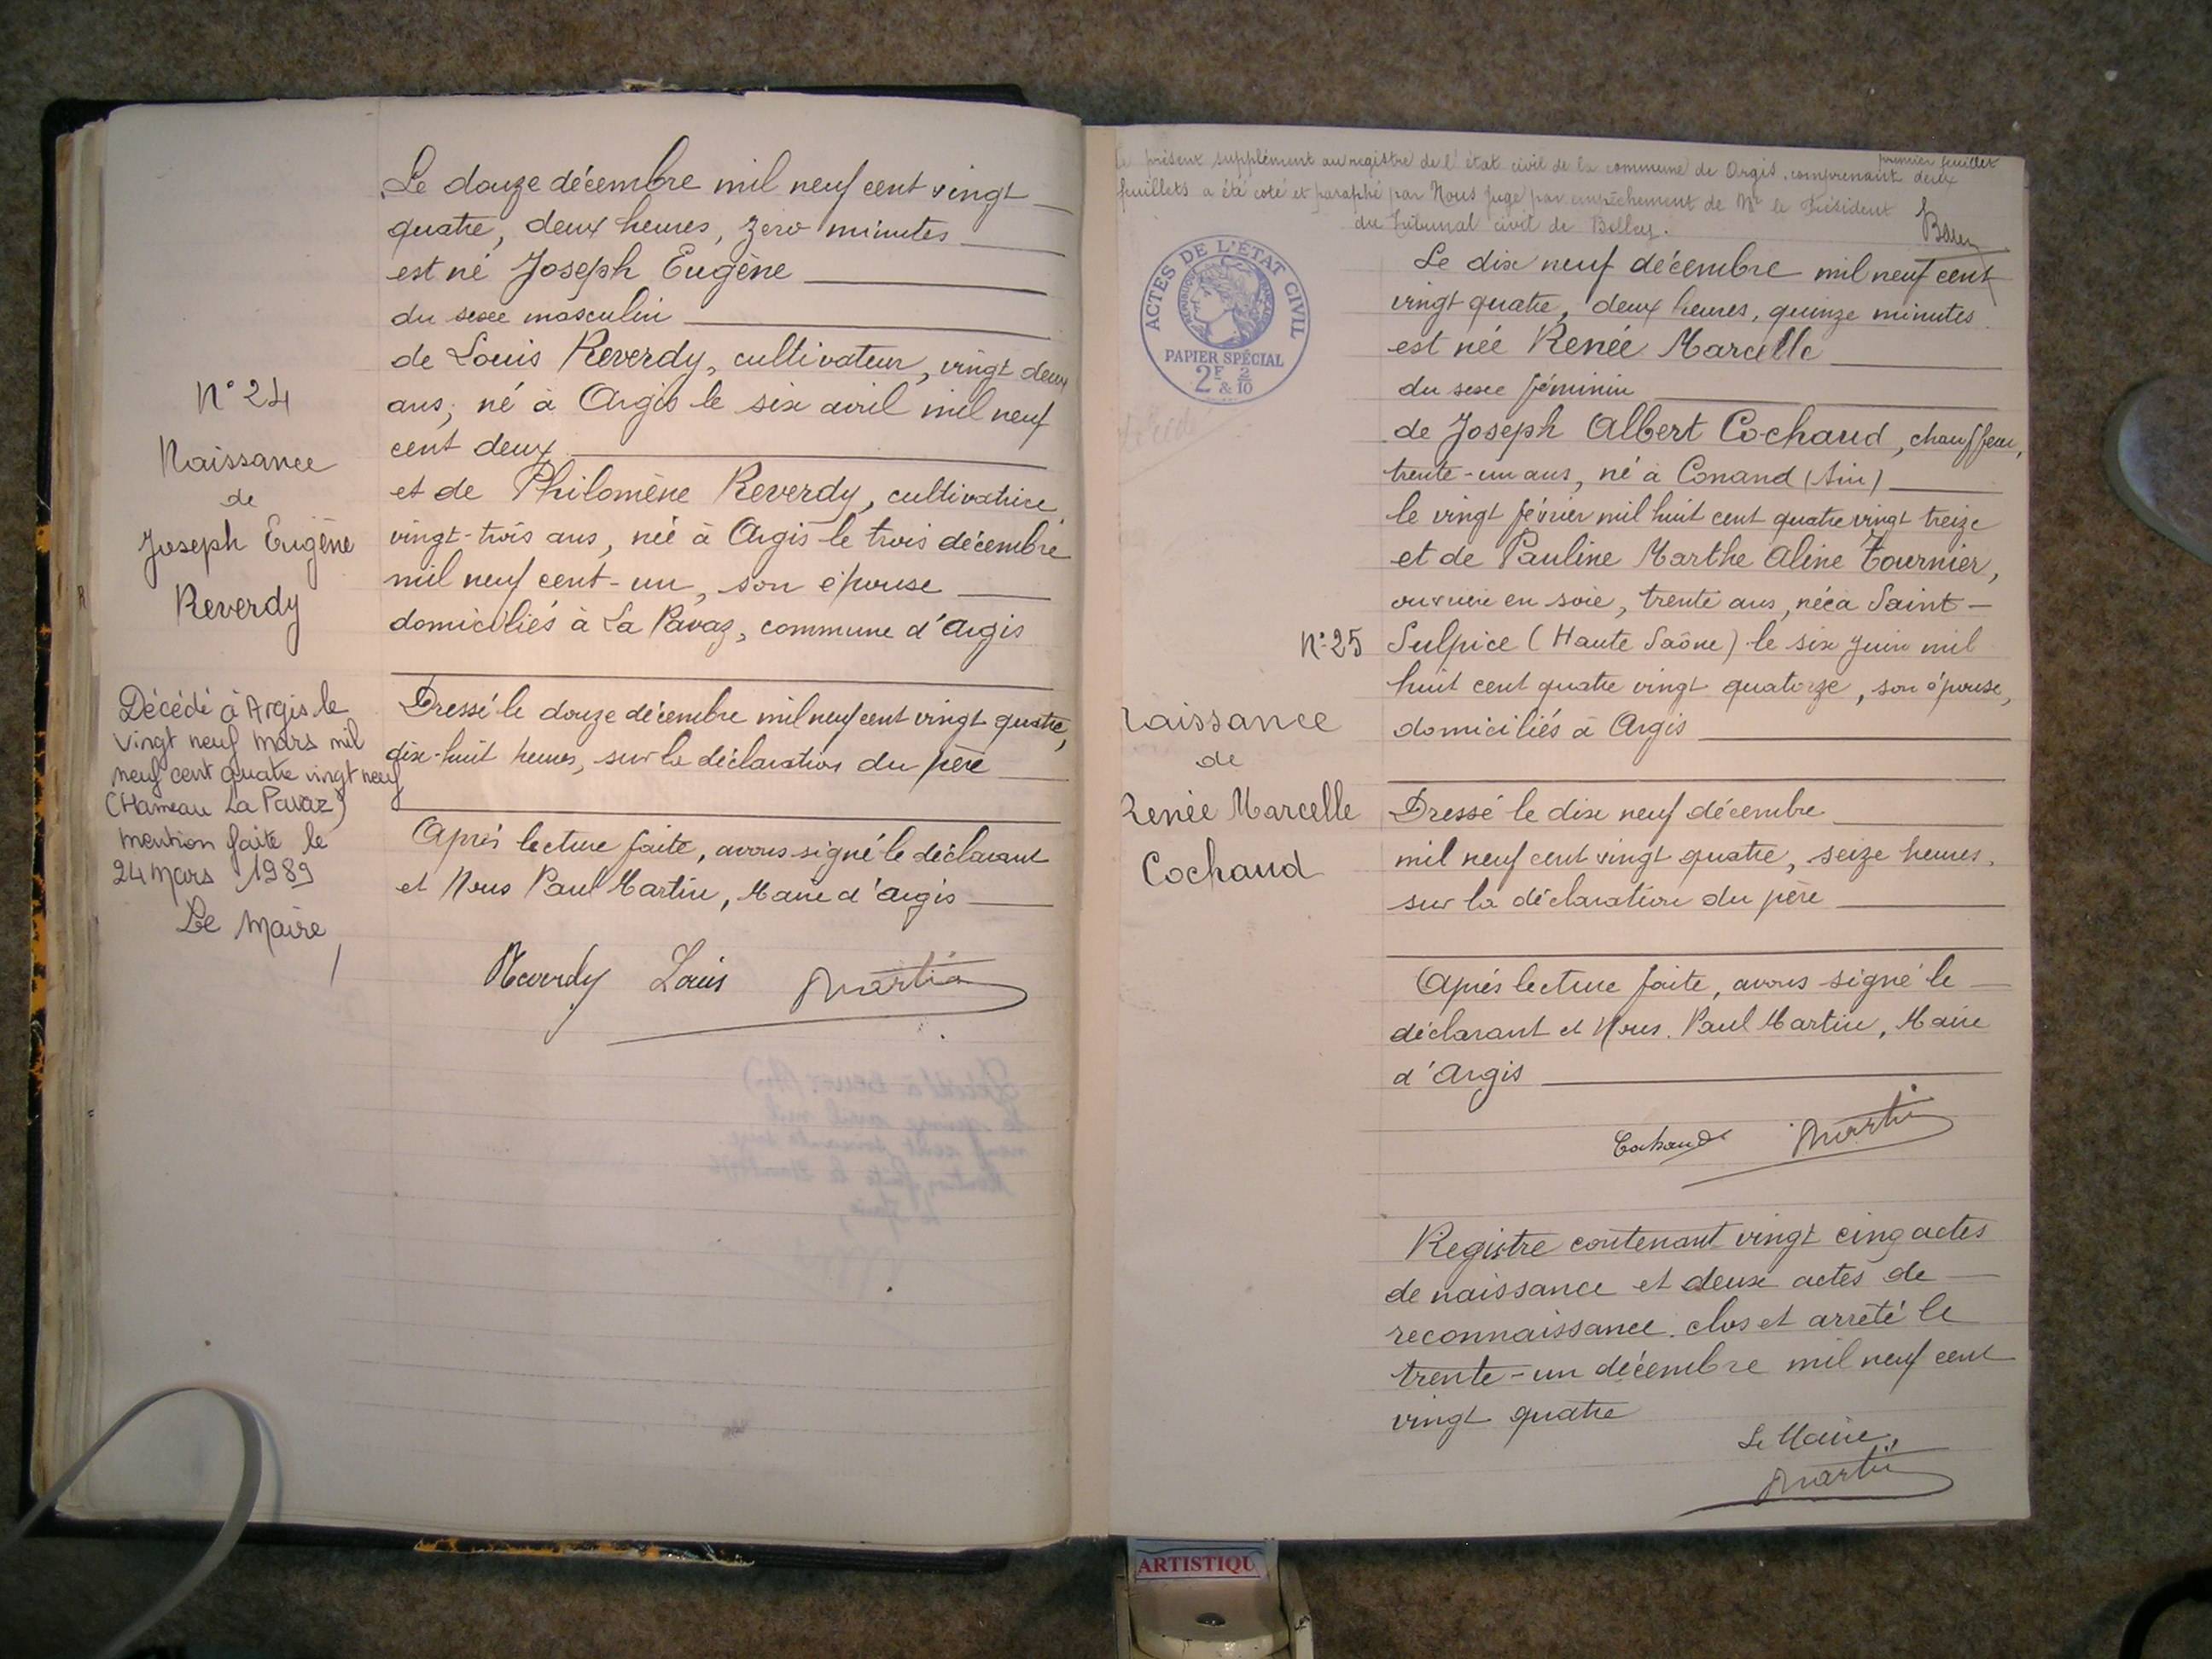 N° 24
Naissance
de
Joseph Eugène
Reverdy
Décédé à Argis le
vingt neuf mars mil
neuf cent quatre vingt neuf
(Hameau La Pavaz)
mention faite le
24 mars 1989
Le Maire,
Le douze décembre mil neuf cent vingt
quatre, deux heures, zéro minutes
est né Joseph Eugène
du sexe masculin
de Louis Reverdy, cultivateur, vingt deux
ans, né à Argis le six avril mil neuf
cent deux
et de Philomène Reverdy, cultivatrice,
vingt-trois ans, née à Argis le trois décembre
mil neuf cent-un, son épouse
domiciliés à La Pavaz, commune d'Argis
Dressé le douze décembre mil neuf cent vingt quatre,
dix-huit heures, sur la déclaration du père
Après lecture faite, avons signé le déclarant
et Nous Paul Martin, Maire d'Argis
Reverdy Louis Martin
premier feuillet
Le présent supplément au registre de l'état civil de la commune de Argis, comprenant deux
feuillets a été coté et paraphé par Nous Juge par empêchement de Mr le Président
du Tribunal civil de Belley.
ACTES DE L'ÉTAT CIVIL
RÉPUBLIQUE FRANÇAISE
PAPIER SPÉCIAL
2F & 2/10
N° 25
Naissance
de
Renée Marcelle
Cochaud
Le dix neuf décembre mil neuf cent
vingt quatre, deux heures, quinze minutes
est née Renée Marcelle
du sexe féminin
de Joseph Albert Cochaud, chauffeur,
trente-un ans, né à Conand (Ain)
le vingt février mil huit cent quatre vingt treize
et de Pauline Marthe Aline Tournier,
ouvrière en soie, trente ans, née à Saint-
Sulpice (Haute Saône) le six Juin mil
huit cent quatre vingt quatorze, son épouse,
domiciliés à Argis
Dressé le dix neuf décembre
mil neuf cent vingt quatre, seize heures,
sur la déclaration du père
Après lecture faite, avons signé le
déclarant et Nous. Paul Martin, Maire
d'Argis
Cochaud Martin
Registre contenant vingt cinq actes
de naissance et deux actes de
reconnaissance. clos et arrêté le
trente-un décembre mil neuf cent
vingt quatre
Le Maire,
Martin
ARTISTIQU